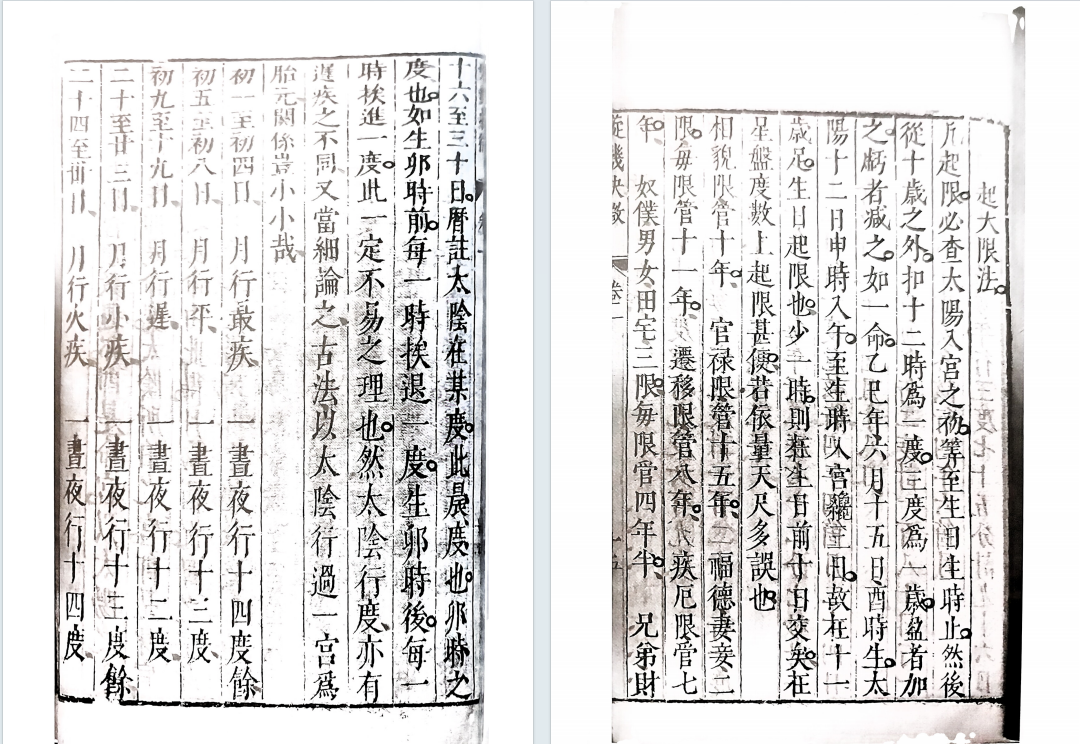 起大限法
凡起限必查太陽入宮之初筭至生日生時止然後
從十歲之外扣十二時為一度三度為一歲盈者加
之虧者減之如一命乙巳年六月十五日酉時生太
陽十二日申時入午至生時入宮纔三日故在十一
歲足生日起限也少一時則在生日前十日交矣在
星盤度數上起限甚便若依量天尺多誤也
相貌限管十年 官禄限管十五年 福德妻妾二
限每限管十一年 遷移限管八年 疾厄限管七
年 奴僕男女田宅三限每限管四年半 兄弟財
十六至三十日曆註太陰在某度此晨度也卯時之
度也如生卯時前每一時挨退一度生卯時後每一
時挨進一度此一定不易之理也然太陰行度亦有
遲疾之不同又當細論之古法以太陰行過一宮為
胎元關係豈小小哉
初一至初四日 月行最疾 一晝夜行十四度餘
初五至初八日 月行平 一晝夜行十三度
初九至十九日 月行遲 一晝夜行十二度
二十至廿三日 月行小疾 一晝夜行十三度餘
二十四至卅日 月行大疾 一晝夜行十四度